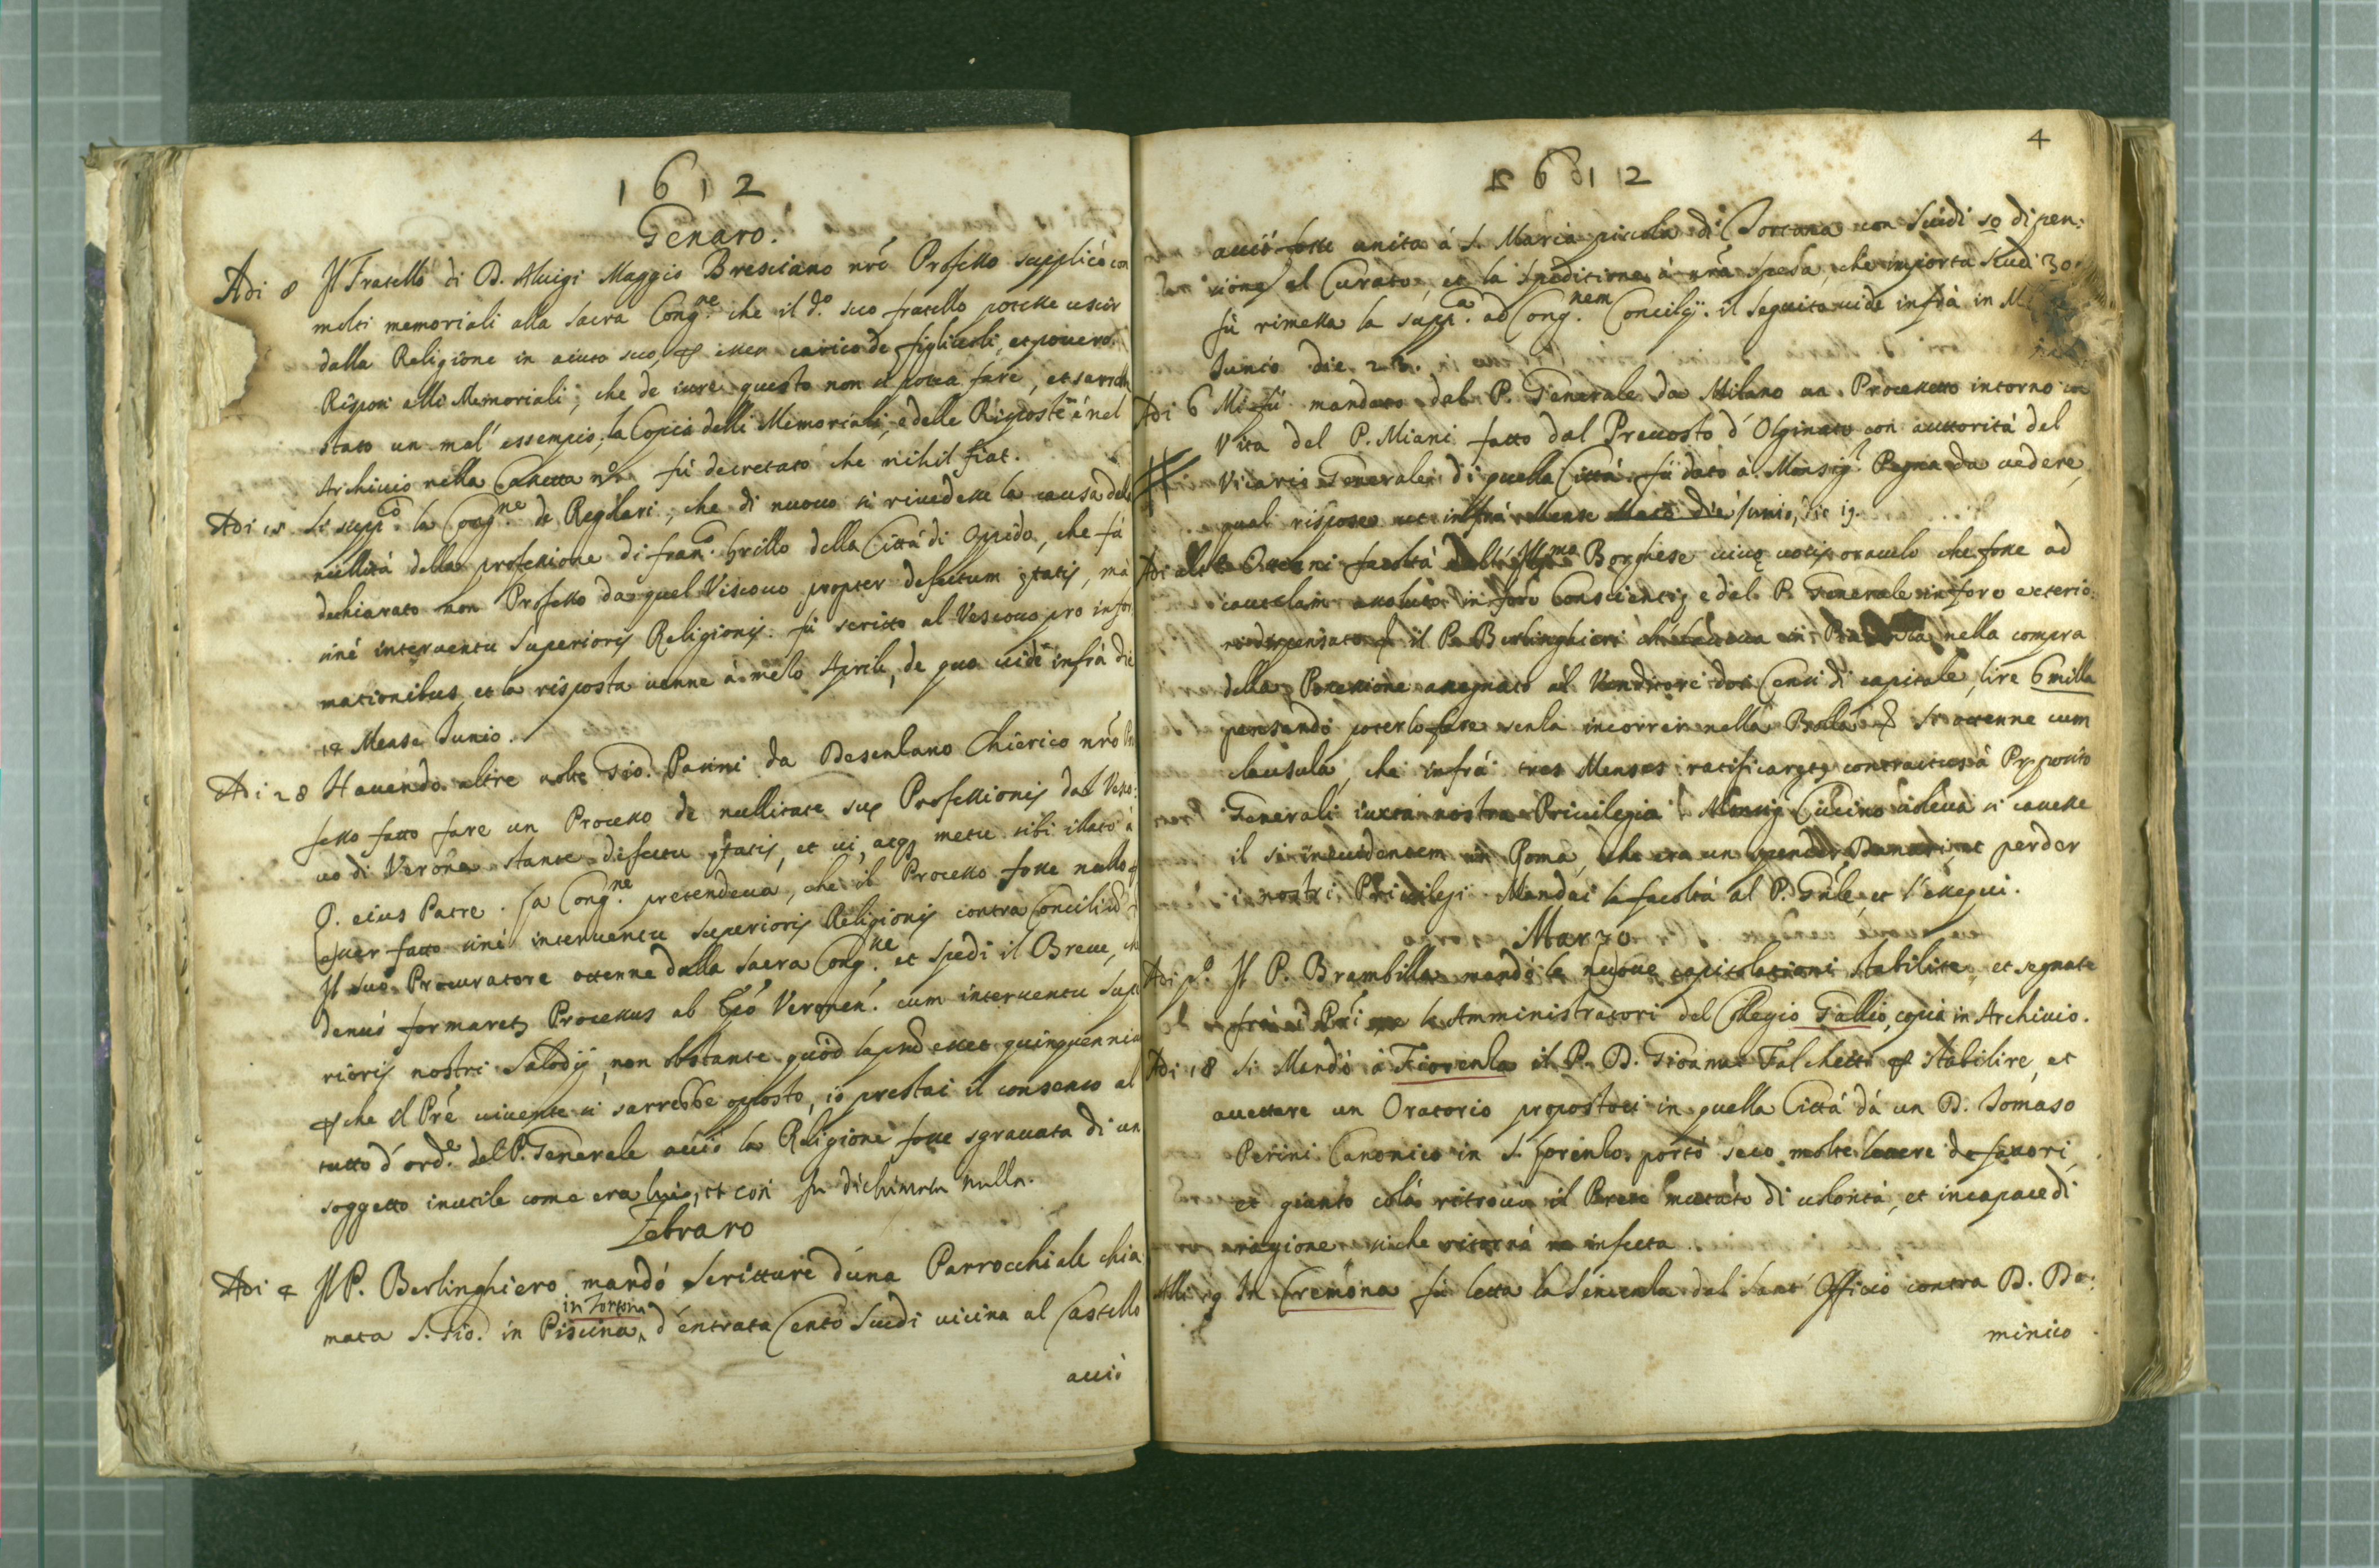 1612
Genaro.
Adi 8 Il Fratello di D. Aluigi Maggio Bresciano nrõ Professo supplicò con
molti memoriali alla Sacra Cong.ne che il d.o suo fratello potesse uscir
dalla Religione in aiuto suo, esser carico de figliuoli, et povero.
Risposi alli Memoriali, che de iure questo non si potea fare, et sarrebbe
stato un mal' essempio, la Copia delli Memoriali, e delle Risposte è nel
Archivio nella Cassetta fù decretato che nihil fiat.
Adi 15 Si supp.co la Cong.ne de Regolari, che di nuovo si rivedesse la causa della
nullità della professione di fran.co Grillo della Città di Oppido, che fù
dechiarato non Professo da quel Viscovo propter defectum ętatis, mà
sinè interventu Superioris Religionis. fù scritto al Vescovo pro infor
mationibus, et la risposta venne à mezo Aprile, de quo vide infrà die
18 Mense Junio.
Adi 28 Havendo altre volte Gio. Parini da Desenzano Chierico nrõ Pro
fesso fatto fare un Processo de nullitate suę Professionis dal Vesco:
vo di Verona stante defectu ętatis, et vi, atq3 metu sibi illato à
P. eius Patre. La Cong.ne pretendeva, che il Processo fosse nullo
esser fatto sinè interventu superioris Religionis contra Conciliũ
Il suo Procuratore ottenne dalla Sacra Cong.ne et spedì il Breve, che
denuò formaret3 Processus ab Epõ Veronen. cum interventu Supe
rioris nostri Salodij, non obstante quòd lapsũ esset quinquennium
che il Prẽ vivente si sarrebbe opposto, iò prestai il consenso al
tutto d'ord.e del P. Generale acciò la Religione fosse sgravata di un
soggetto inutile come era lui, et così fu dichiarata nulla.
Febraro
Adi 4 Il P. Berlinghiero mandò scritture d'una Parrocchiale chia
in Tortona
mata S. Gio. in Piscina, d'entrata Cento Scudi vicina al Castello
acciò
4
1612
acciò fosse unita à S. Maria piccola di Tortona con Scudi 50 di pen:
sione al Curato, et la speditione à nrã spesa, che importa Scudi 30.
fù rimessa la supp.ca ad Cong.nem Concilij. il seguito vide infrà in
Junio die 23.
Adi 6 Mi fù mandato dal P. Generale da Milano un Processetto intorno
Vita del P. Miani fatto dal Prevosto d'Olginate con auttorità del
Vicario Generale di quella Città fù dato à Monsig.r Pegna da vedere,
qual rispose ut infrà Mense Junio, die 19.
Adi Ottenni facoltà dall' Ill.mo Borghese vivę vocis oraculo che fosse ad
cautelam assoluto in foro Conscientię, e dal P. Generale in foro exterio:
ri dispensato il P. Berlinghieri nella compra
della Possessione assegnato al Venditore doi Censi di capitale, lire 6 milla
pensando poterlo fare senza incorrer nella Bolla. Si ottenne cum
clausula, che infrà tres Menses ratificaret3 contractus à Pręposito
Generali iuxta nostra Privilegia. Monsig. voleva si cavesse
il si in evidentem in Roma, che era un spender Danari, et perder
i nostri Privilegi. Mandai la facoltà al P. Gñle, et l'essequì.
Marzo
Adi p.o Il P. Brambilla mandò le nuove capitolationi stabilite, et segnate
frà li Amministratori del Collegio Gallio, copia in Archivio.
Adi 18 Si Mandò à Fiorenza il P. D. Gioanni Falchetti stabilire, et
accettare un Oratorio propostoci in quella Città dà un D. Tomaso
Perini Canonico in S. Lorenzo. portò seco molte lettere de favori,
et giunto colà ritrovò il Prete mutato di volontà, et incapace di
ragione siche ritornò re infecta.
Alli 19 In Cremona fù letta la Sentenza dal Sant' Officio contra D. Do:
minico